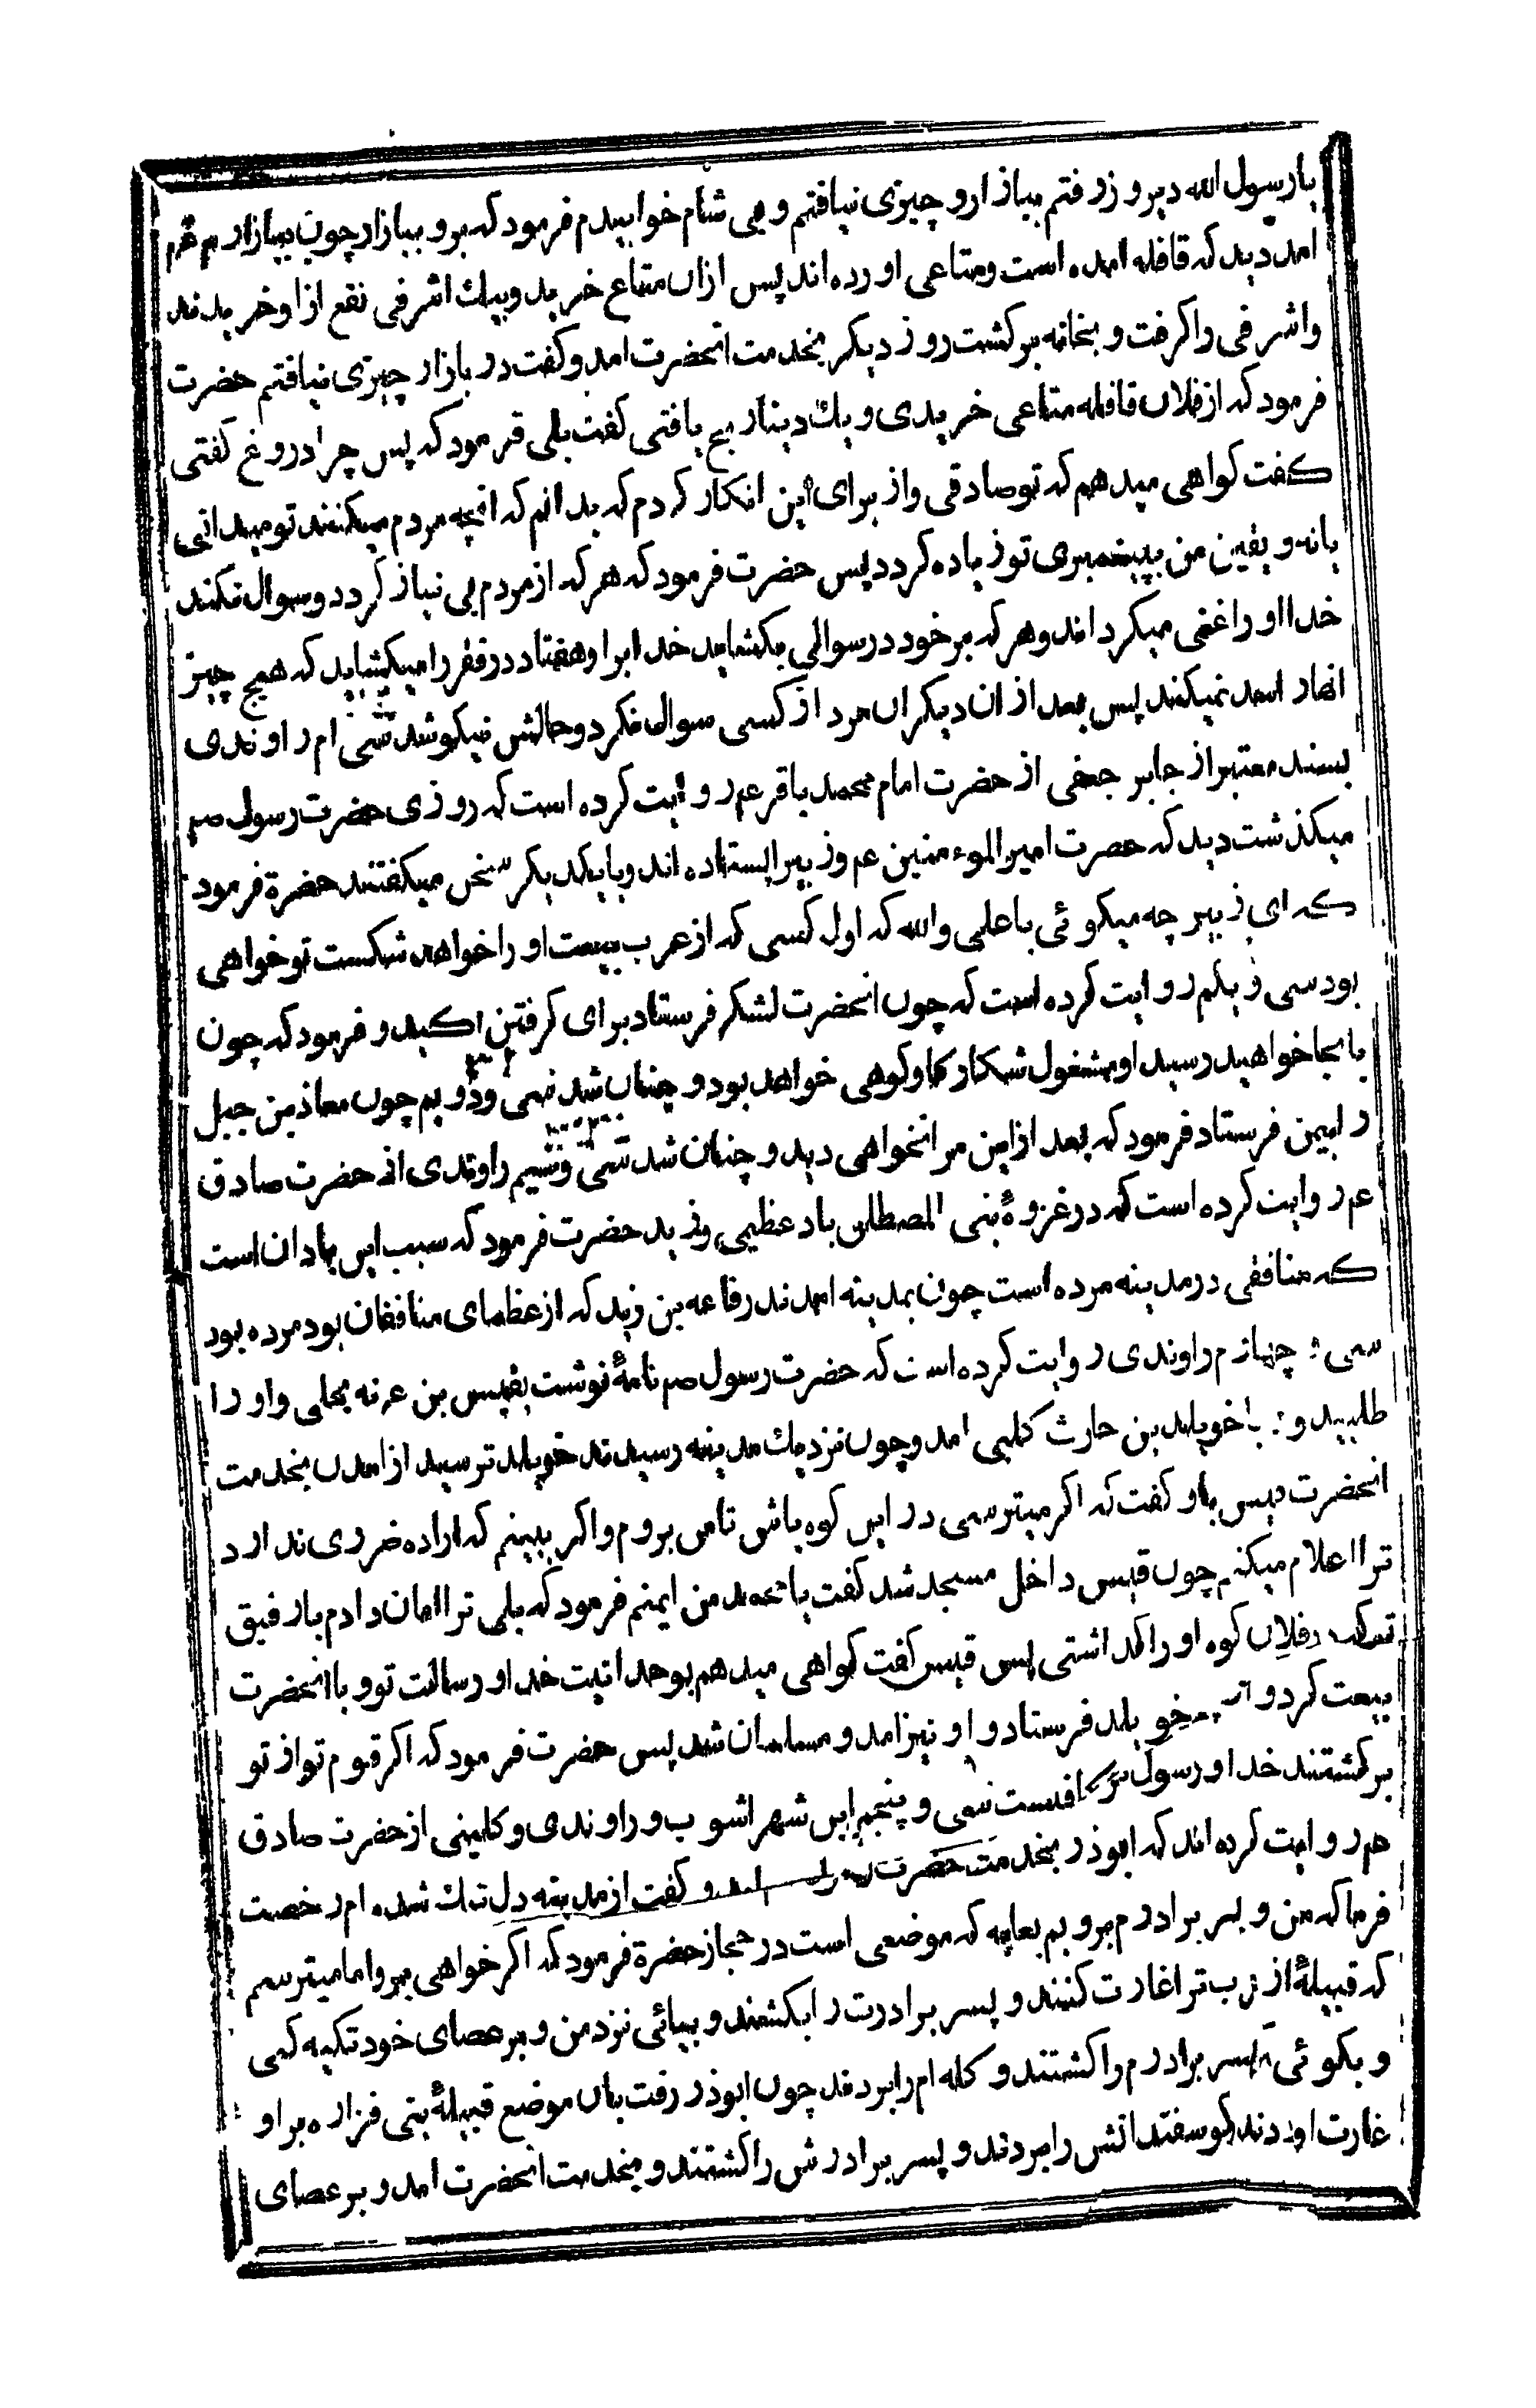 یا رسول الله دیروز رفتم ببازار و چیزی نیافتم و بی شام خوابیدم فرمود که برو ببازار چون ببازار
امد دید که قافله امده است و متاعی اورده اند پس ازان متاع خرید و بیك اشرفی نفع ازا و خریدند
واشرفی را کرفت و بخانه برکشت روز دیکر بخدمت انحضرت امد و کفت در بازار چیزی نیافتم حضرت
فرمود که از فلان قافله متاعی خریدی و یك دینار ربح یافتی کفت بلی فرمود که پس چرا دروغ کفتی
کفت کواهی میدهم که تو صادقی و از برای این انکار کردم که بدانم که انچه مردم میکنند تو میدانی
یا نه و یقین من بپیغمبری تو زیاده کردد پس حضرت فرمود که هر که از مردم بی نیاز کردد و سوال نکند
خدا او را غنی میکرداند و هر که بر خود در سوالی بکشاید خدا بر او هفتاد در فقر را میکشاید که هیچ چیز
انها را سد نمیکند پس بعد از ان دیکر ان مرد از کسی سوال نکرد و حالش نیکو شد سی ام راوندی
بسند معتبر از جابر جعفی از حضرت امام محمد باقر عم روایت کرده است که روزی حضرت رسول صم
میکذشت دید که حضرت امیر الموءمنین عم و زبیر ایستاده اند و با یکدیکر سخن میکفتند حضرة فرمود
که ای زبیر چه میکوئی با علی والله که اول کسی که از عرب بیعت او را خواهد شکست تو خواهی
بود سی و یکم روایت کرده است که چون انحضرت لشکر فرستاد برای کرفتن اکیدر فرمود که چون
بانجا خواهید رسید او مشغول شکار کاو کوهی خواهد بود و چنان شد سی و دویم چون معاذ بن جبل
را بیمن فرستاد فرمود که بعد ازین مرا نخواهی دید و چنان شد سی و سیم راوندی از حضرت صادق
عم روایت کرده است که در غزوهٔ بنی المصطلق باد عظیمی وزید حضرت فرمود که سبب این باد ان است
که منافقی در مدینه مرده است چون بمدینه امدند رفاعه بن زید که از عظمای منافقان بود مرده بود
سی و چهارم راوندی روایت کرده است که حضرت رسول صم نامهٔ نوشت بقیس بن عرنه بجلی و او را
طلبید و با خویلد بن حارث کلبی امد و چون نزدیك مدینه رسیدند خویلد ترسید از امدن بخدمت
انحضرت قیس باو کفت که اکر میترسی در این کوه باش تا من بروم و اکر ببینم که اراده ضرری ندارد
ترا اعلام میکنم چون قیس داخل مسجد شد کفت یا محمد من ایمنم فرمود که بلی ترا امان دادم با رفیق
تو که در فلان کوه او را کذاشتی پس قیس کفت کواهی میدهم بوحدانیت خدا و رسالت تو و با انحضرت
بیعت کرد و خویلد فرستاد و او نیز امد و مسلمان شد پس حضرت فرمود که اکر قوم تو از تو
برکشتند خدا و رسول ترا کافیست سی و پنجم ابن شهراشوب و راوندی و کلینی از حضرت صادق
عم روایت کرده اند که ابوذر بخدمت حضرت رسول امد و کفت از مدینه دل تنك شده ام رخصت
فرما که من و پسر برادرم برویم بغابه که موضعی است در حجاز حضرة فرمود که اکر خواهی برو اما میترسم
که قبیلهٔ از عرب ترا غارت کنند و پسر برادرت را بکشند و بیائی نزد من و بر عصای خود تکیه کنی
و بکوئی پسر برادرم را کشتند و کله ام را بردند چون ابوذر رفت بان موضع قبیلهٔ بنی فزاره بر او
غارت اوردند کوسفندانش را بردند و پسر برادرش را کشتند و بخدمت انحضرت امد و بر عصای